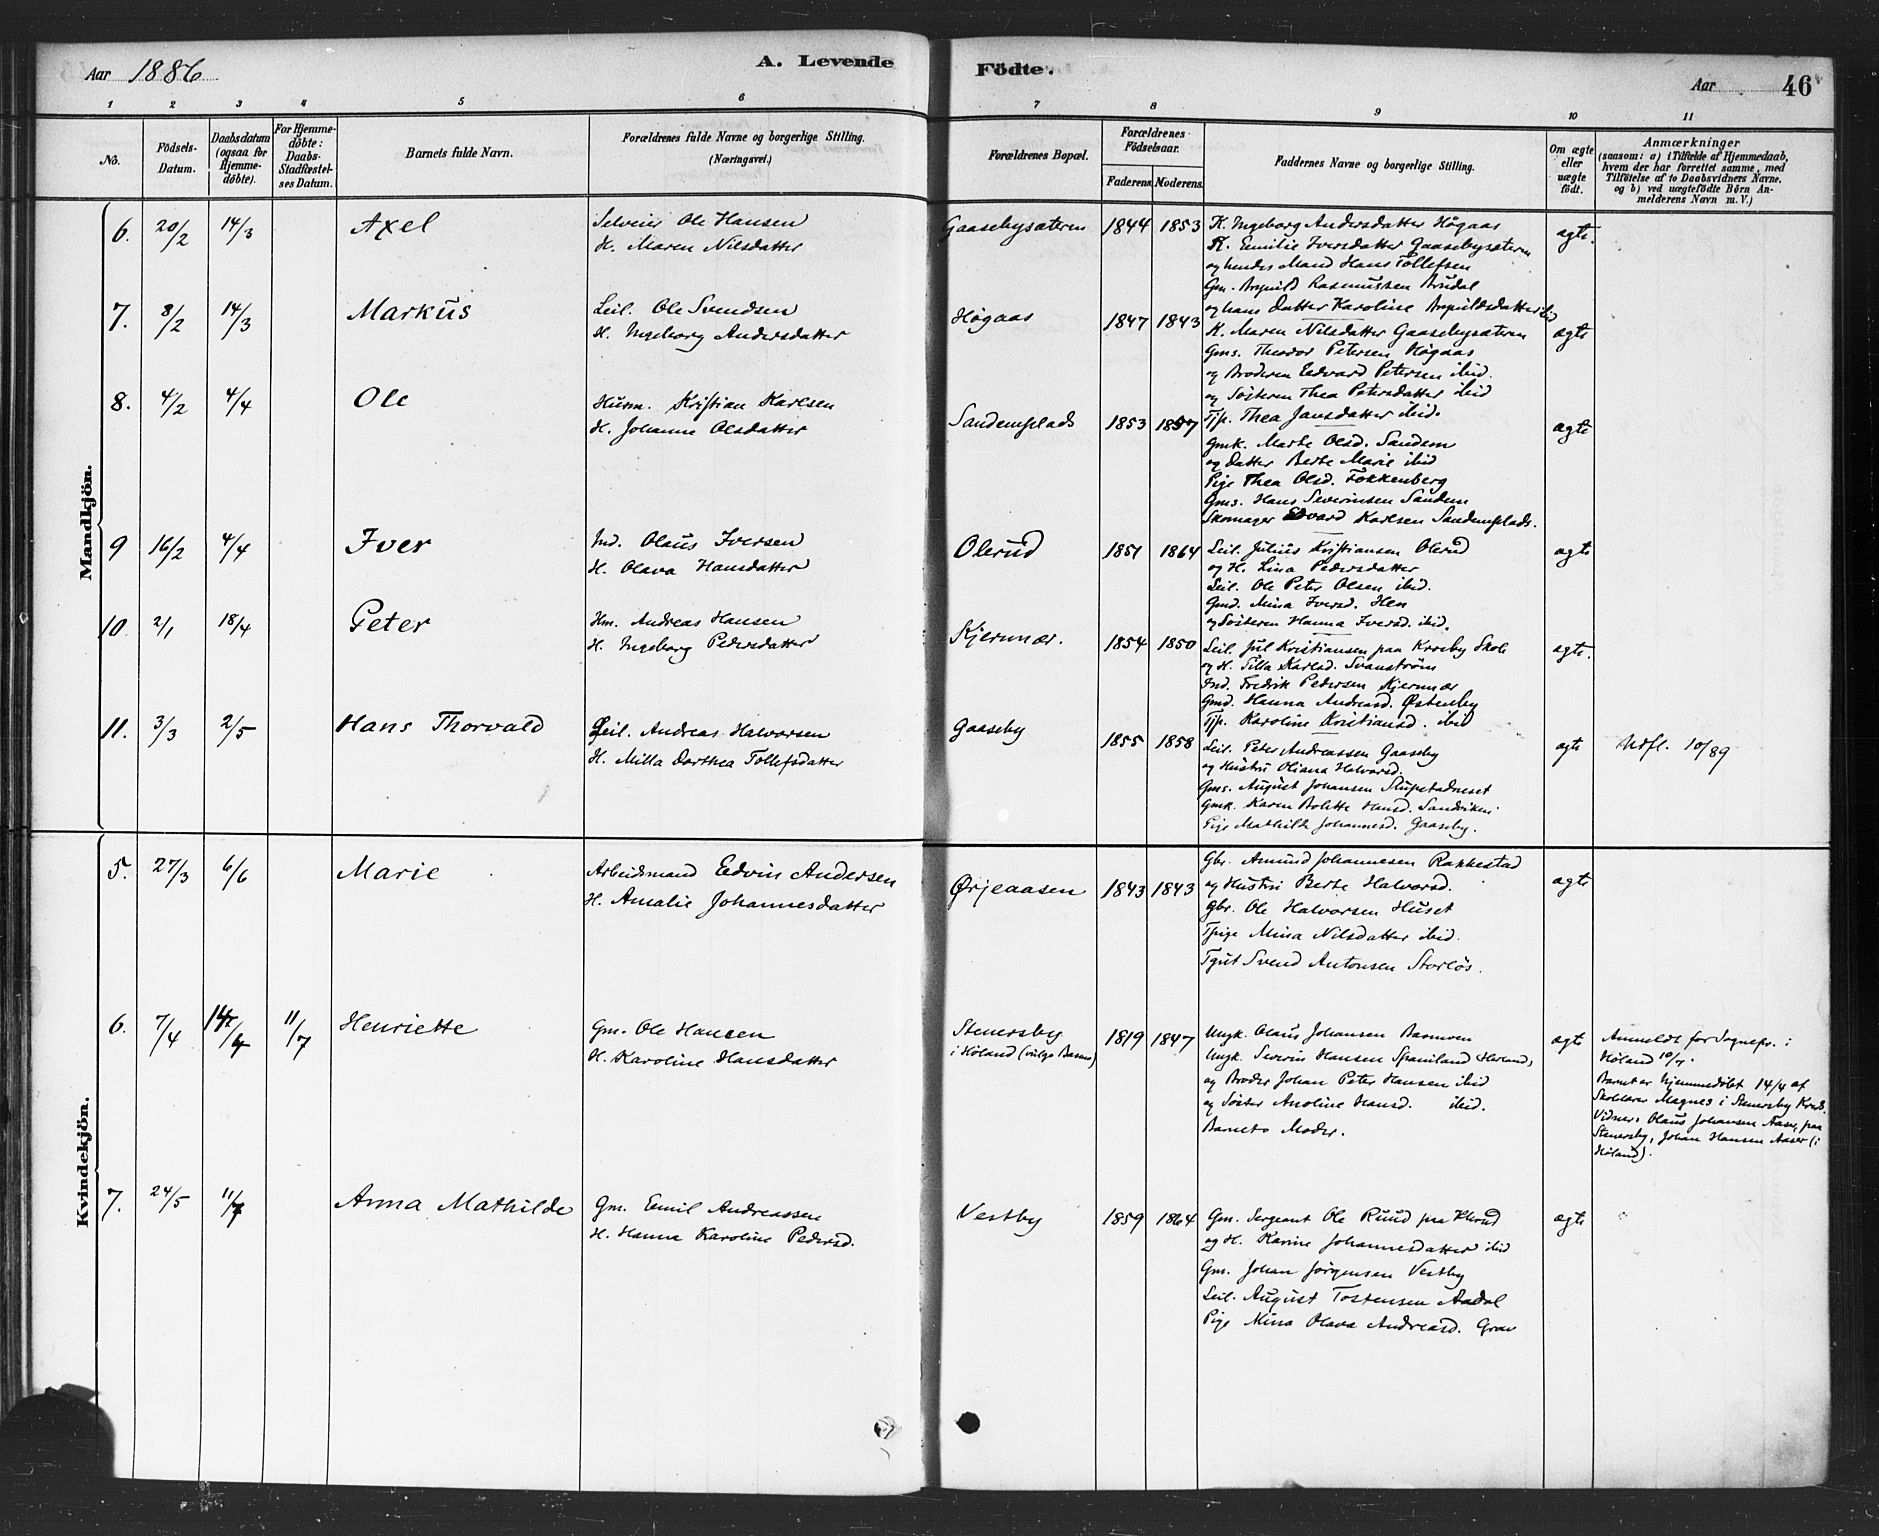 Aar 1886
A. Levende
Födte.
Aar
46
1 2 3 4 5 6 7 8 9 10 11
No.
Födsels-Datum.
Daabsdatum (ogsaa for Hjemme-döbte).
For Hjemme-döbte: Daabs-Stadfæstel-ses Datum.
Barnets fulde Navn.
Forældrenes fulde Navne og borgerlige Stilling. (Næringsvei.)
Forældrenes Bopæl.
Forældrenes Födselsaar.
Faderens. Moderens.
Faddernes Navne og borgerlige Stilling.
Om ægte eller uægte födt.
Anmærkninger
(saasom: a) i Tilfælde af Hjemmedaab,
hvem der har forrettet samme, med
Tilföielse af to Daabsvidners Navne,
og b) ved uægtefödte Börn An-
melderens Navn m. V.)
Mandkjön.
6. 20/2 14/3 Axel
Selveier Ole Hansen
H. Maren Nilsdatter
Gaasebysæteren 1844 1853
K. Ingeborg Andersdatter Høgaas
K. Emilie Iversdatter Gaasebysæteren
og hendes Mand Hans Tollefsen
Gm. Arnuld Rasmussen Aasdal
og hans Datter Karoline
ægte.
7. 8/2 14/3 Markus
Leil. Ole Svendsen
H. Ingeborg Andersdatter
Høgaas 1847 1843
K. Maren Nilsdatter Gaasebysæteren
Gms. Theodor Petersen Høgaas
og Broderen Edvard Petersen ibid.
og Søsteren Thea Petersdatter ibid
Tjp. Thea Jansdatter ibid.
ægte
8. 4/2 4/4 Ole
Husm. Kristian Karlsen
H. Johanne Olsdatter
Sandemplads 1853 1857
Gmk. Marte Olsd. Sandem
og Datter Berte Marie ibid
Pige Thea Olsd. Fokkenberg
Gms. Hans Severinsen Sandem
Skomager Edvard Karlsen Sandemplads.
ægte
9 16/2 4/4 Iver
Ind. Olaus Iversen
H. Olava Hansdatter
Olerud 1851 1864
Leil. Julius Kristiansen Olerud
og H. Lina Pedersdatter
Leil. Ole Peter Olsen ibid.
Gmd. Mina Iversd. Hen
og Søsteren Hanna Iversd. ibid.
ægte
10. 2/1 18/4 Peter
Hm. Andreas Hansen
H. Ingeborg Pedersdatter
Kjernnær. 1854 1850
Leil. Jul Kristiansen paa Kroeby Skole
og H. Tilla Karlsd. Svanstrøm
Ind. Fredrik Pedersen Kjernnær
Gmd. Hanna Andreasd. Østenby
Tjp. Karoline Kristiansd. ibid
ægte.
11. 3/3 2/5 Hans Thorvald
Leil. Andreas Halvorsen
H. Milla Dorthea Tollefsdatter
Gaaseby 1855 1858
Leil. Peter Andreassen Gaaseby
og Hustru Oliana Halvorsd.
Gms. August Johansen Slupstadneset
Gmk. Karen Bolette Hansd. Sandviken
Pige Mathilde Johannesd. Gaaseby.
ægte
Udfl. 10/89
Kvindekjön.
5. 27/3 6/6 Marie
Arbeidsmand Edvin Andersen
H. Amalie Johannesdatter
Ørjeaasen 1843 1843
Gbr. Amund Johannesen Rakkestad
og Hustru Berte Halvorsd.
Gbr. Ole Halvorsen Huset
Tpige Mina Nilsdatter ibid.
Tgut Svend Antonsen Storløs.
ægte
6. 7/4 14/4 11/7 Henriette
Gm. Ole Hansen
H. Karoline Hansdatter
Stenersby
i Høland
1819 1847
Ungk. Olaus Johansen Basmoen
Ungk. Severin Hansen Spaniland
og Broder Johan Peter Hansen ibid
og Søster Anoline Hansd. ibid.
Barnets Moder.
ægte
Anmeldt for Sognepr. i
Høland
Barnet er hjemmedøbt 14/4 af
Skolelærer Magnes i Stenersby Kreds.
Vidner: Olaus Johansen Aaser, paa
Stenersby, Johan Hansen Aaser (i
Høland).
7. 24/5 11/7 Anna Mathilde
Gm. Emil Andreassen
H. Hanna Karoline Pedersd.
Vestby 1859 1864
Gm. Sergeant Ole Ruud paa Klerud
og H. Karine Johannesdatter ibid
Gm. Johan Jørgensen Vestby
Leil. August Tostensen Aadal
Pige Mina Olava Andreasd. Grav
ægte